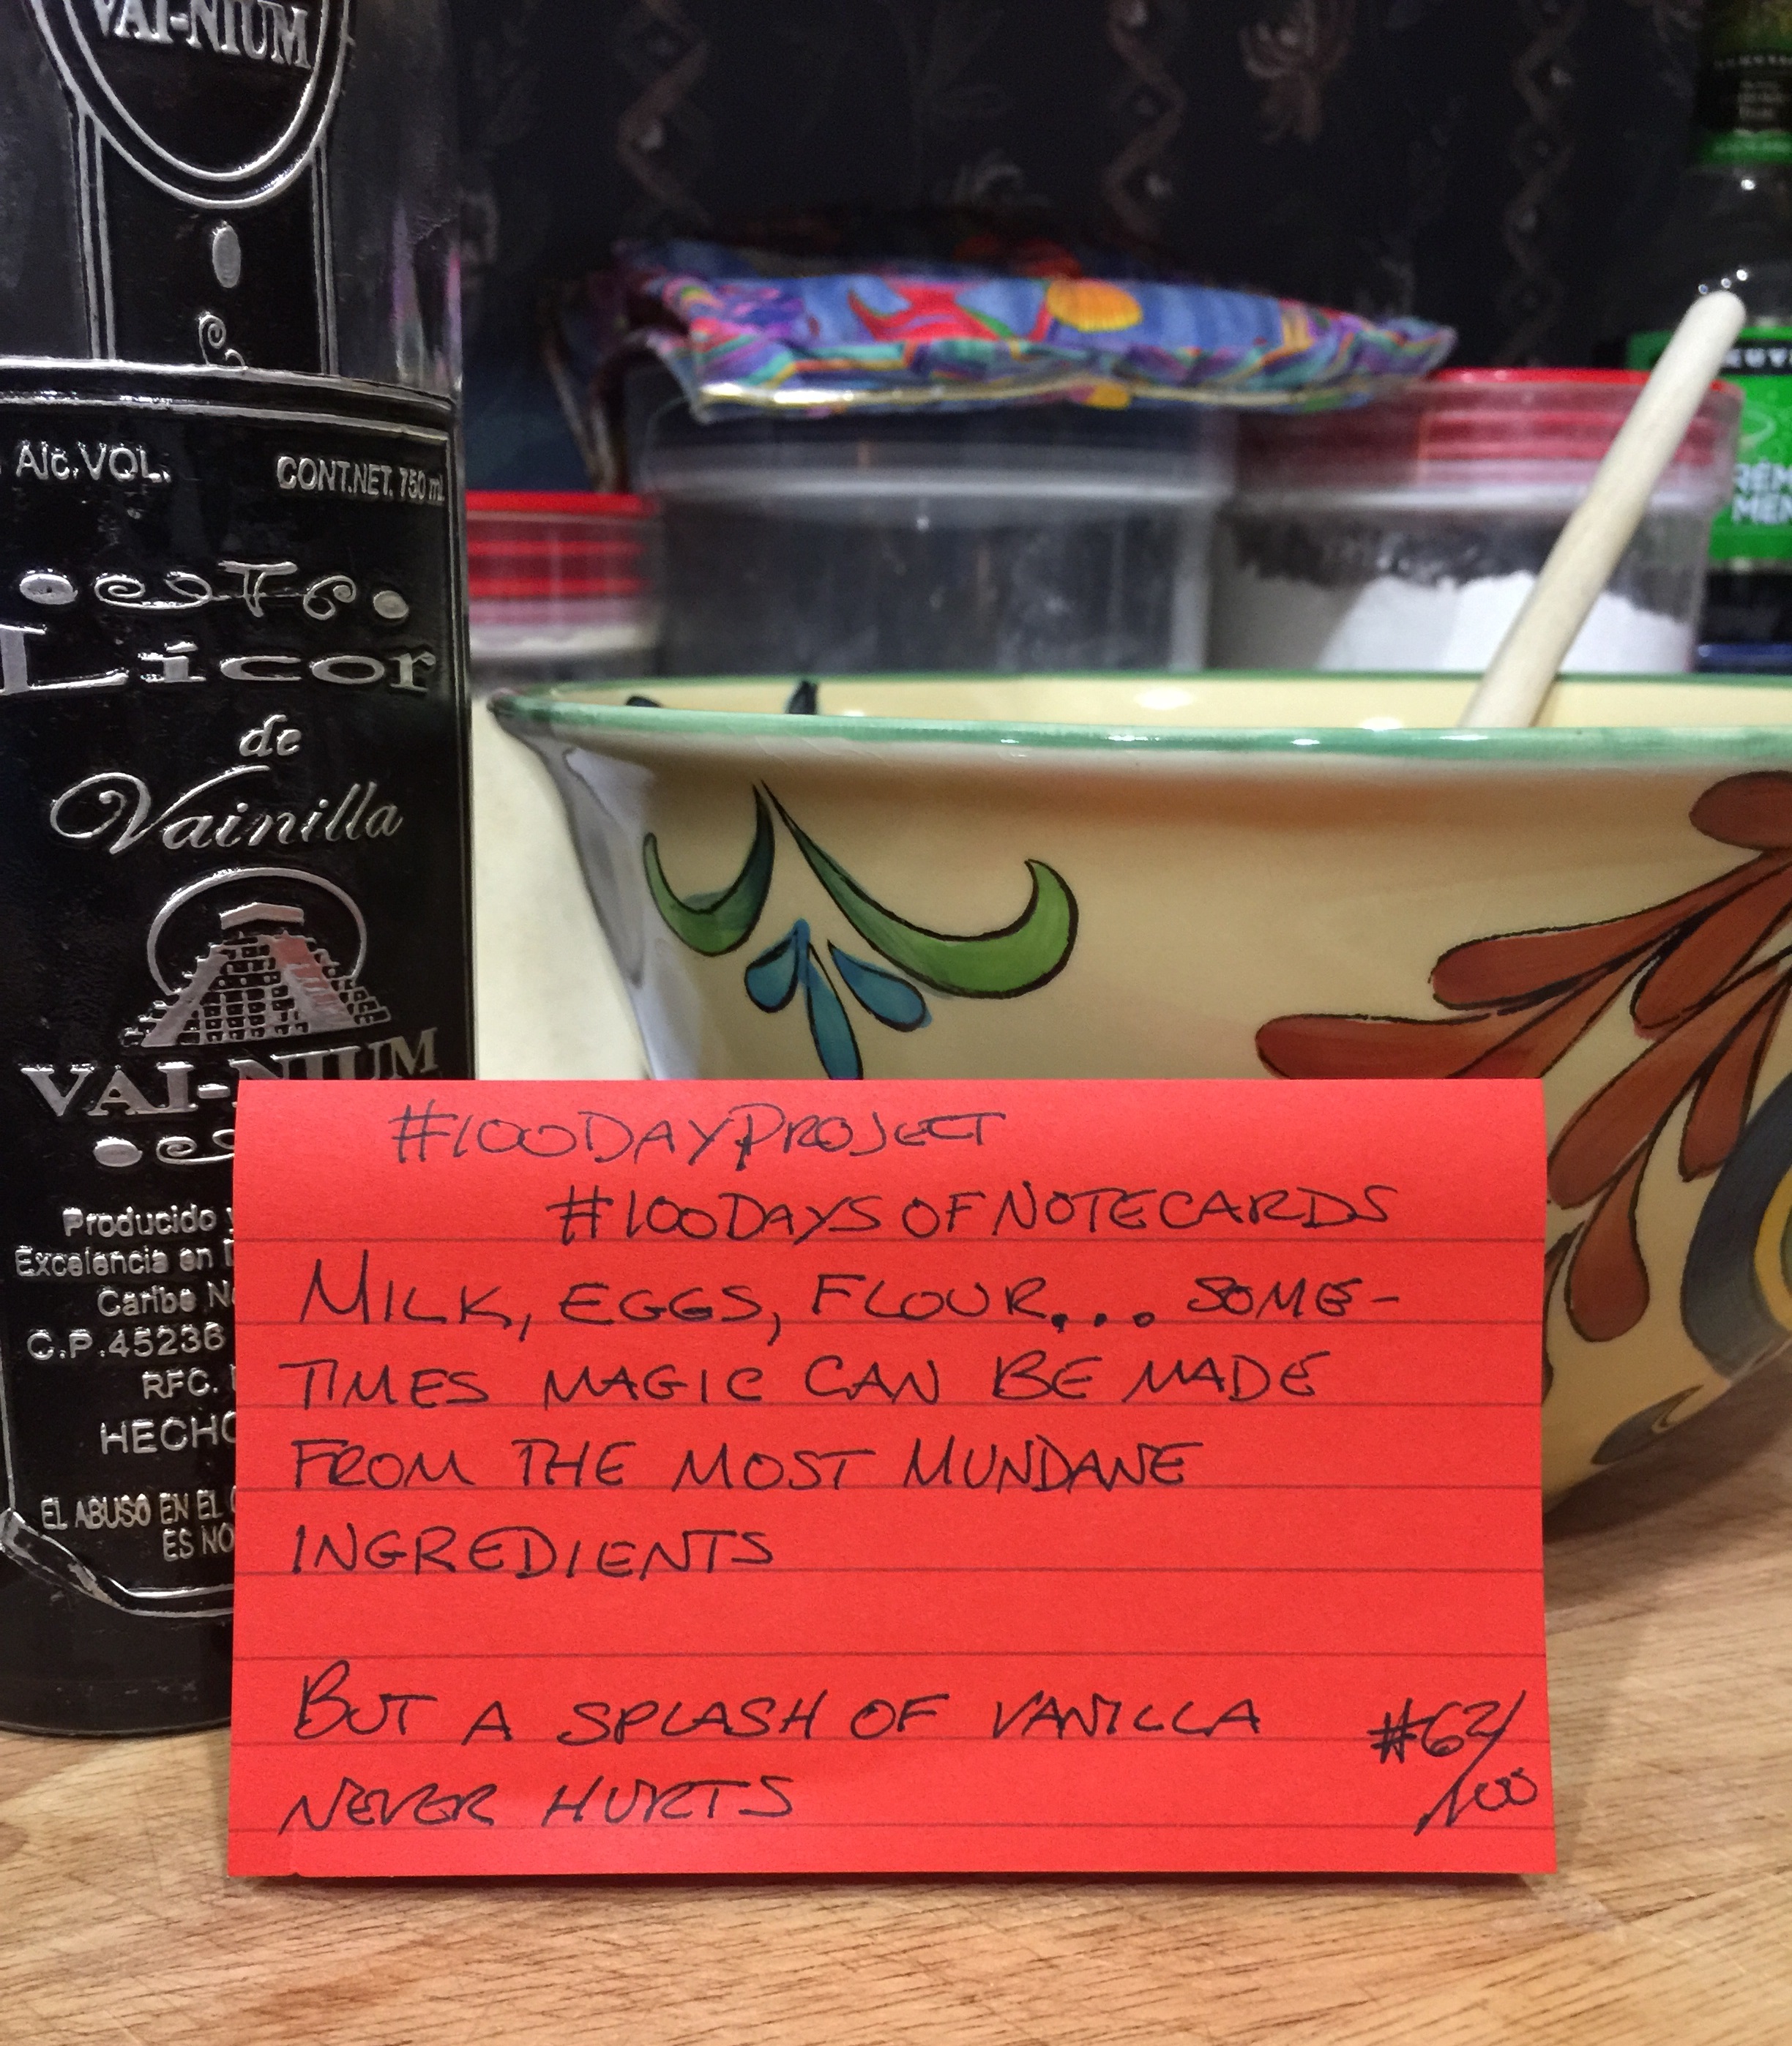 VAI-NIUM
Alc.VOL.
CONT.NET. 750 ml
Licor
de
Vainilla
VAI-NIUM
Producido
Excelencia en
Caribe
C.P.45236
RFC.
HECHO
EL ABUSO EN EL
ES
#100DAYPROJECT
#100DAYSOFNOTECARDS
MILK, EGGS, FLOUR... SOME-
TIMES MAGIC CAN BE MADE
FROM THE MOST MUNDANE
INGREDIENTS
BUT A SPLASH OF VANILLA
NEVER HURTS
#62/
100